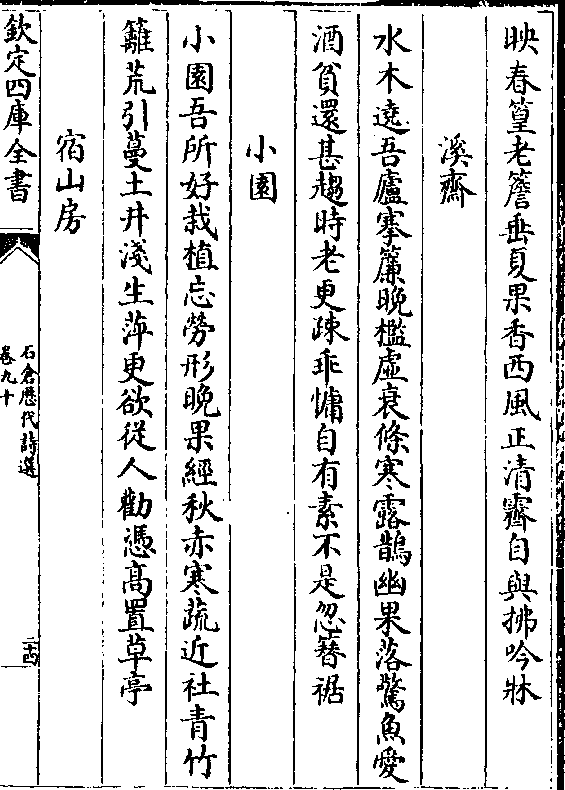 映春篁老簷垂夏果香西風正清霽自與拂吟牀
溪齋
水木遶吾廬搴簾晚檻虛衰條寒露鵲幽果落驚魚愛
酒貧還甚趨時老更疎乖慵自有素不是忽簪裾
小園
小園吾所好栽植忘勞形晚果經秋赤寒蔬近社青竹
籬荒引蔓土井淺生萍更欲從人勸憑髙置草亭
宿山房
欽定四庫全書
石倉歷代詩選
卷九十
二十四